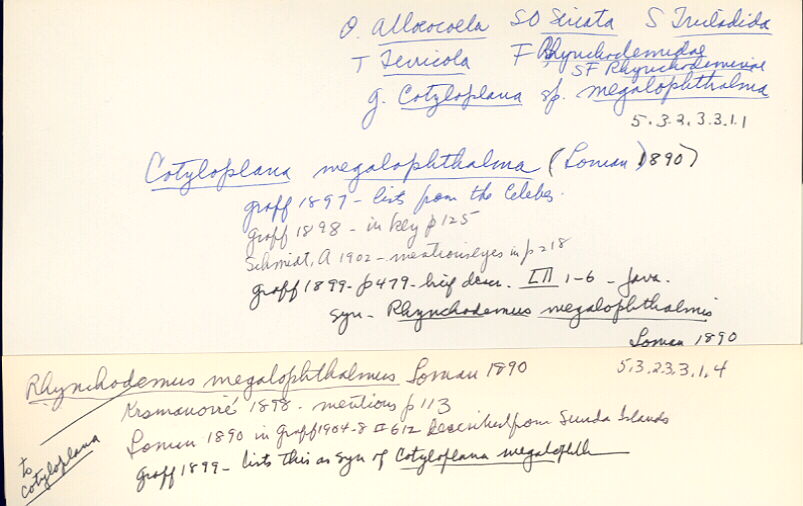 O. Alloeocoela SO Seriata S Tricladida
T Terricola F Rhynchodemidae
SF Rhynchodeminae
g. Cotyloplana sp. megalophthalma
5.3.2.3.3.1.1
Cotyloplana megalophthalma (Loman 1890)
Graff 1897 - lists from the Celebes.
Graff 1898 - in key p 125
Schmidt, A 1902 - mentions eyes in p 218
Graff 1899 - p 479 - brief descr. LII 1-6 - Java.
syn - Rhynchodemus megalophthalmus
Loman 1890
5.3.2.3.3.1.4
Rhynchodemus megalophthalmus Loman 1890
Krsmanović 1898 - mentions p 113
Loman 1890 in Graff 1904-8 II 612 Described from Sunda Islands
Graff 1899 - lists this as syn of Cotyloplana megalophth
to
Cotyloplana